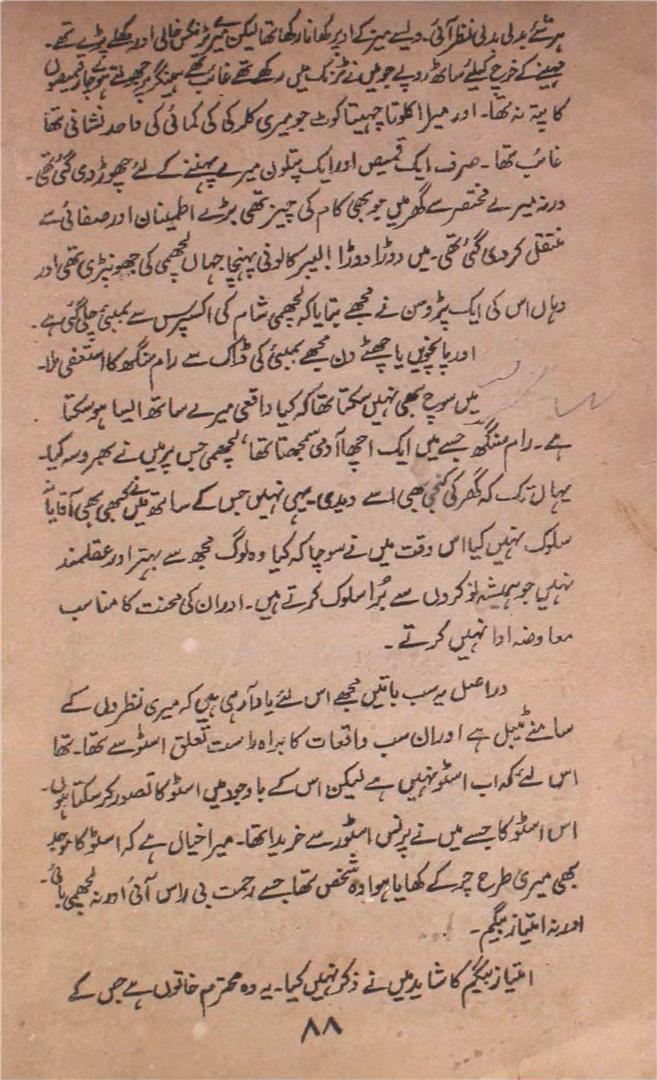 ہر شئے بدلی بدلی نظر آئی۔ ویسے میز کے اوپر کھانا رکھا تھا لیکن میرے ٹرنکس خالی اور کھلے پڑے تھے۔
مہینے کے خرچ کیلئے ساٹھ روپے جو میں نے ٹرنک میں رکھے تھے غائب تھے ہینگر پر جھولتے ہوئے چار قمیصوں
کا پتہ نہ تھا۔ اور میرا اکلوتا چہیتا کوٹ جو میری کلرکی کی کمائی کی واحد نشانی تھا
غائب تھا۔ صرف ایک قمیص اور ایک پتلون میرے پہننے کے لئے چھوڑ دی گئی تھی۔
ورنہ میرے مختصر سے گھر میں جو بھی کام کی چیز تھی بڑے اطمینان اور صفائی سے
منتقل کر دی گئی تھی۔ میں دوڑا دوڑا البیر کالونی پہنچا جہاں لچھمی کی جھونپڑی تھی اور
وہاں اس کی ایک پڑوسن نے مجھے بتایا کہ لچھمی شام کی اکسپرس سے بمبئی چلی گئی ہے۔
اور پانچویں یا چھٹے دن مجھے بمبئی کی ڈاک سے رام سنگھ کا استعفیٰ ملا۔
میں سوچ بھی نہیں سکتا تھا کہ کیا واقعی میرے ساتھ ایسا ہو سکتا
ہے۔ رام سنگھ جسے میں ایک اچھا آدمی سمجھتا تھا، لچھمی جس پر میں نے بھروسہ کیا۔
یہاں تک کہ گھر کی کنجی بھی اسے دیدی۔ یہی نہیں جس کے ساتھ میں نے کبھی بھی آقایانہ
سلوک نہیں کیا اس وقت میں نے سوچا کہ کیا وہ لوگ مجھ سے بہتر اور عقلمند
نہیں جو ہمیشہ نوکروں سے بُرا سلوک کرتے ہیں۔ اور ان کی محنت کا مناسب
معاوضہ ادا نہیں کرتے۔
دراصل یہ سب باتیں مجھے اس لئے یاد آرہی ہیں کہ میری نظروں کے
سامنے ٹیبل ہے اور ان سب واقعات کا براہ راست تعلق اسٹو سے تھا۔ تھا
اس لئے کہ اب اسٹو نہیں ہے لیکن اس کے باوجود میں اسٹو کا تصور کر سکتا ہوں۔
اس اسٹو کا جسے میں نے پرنس اسٹور سے خریدا تھا۔ میرا خیال ہے کہ اسٹو کا موجد
بھی میری طرح چرکے کھایا ہوا وہ شخص تھا جسے رحمت بی راس آئی اور نہ لچھمی بائی۔
اور نہ امتیاز بیگم۔
امتیاز بیگم کا شاید میں نے ذکر نہیں کیا۔ یہ وہ محترم خاتون ہے جس کے
۸۸